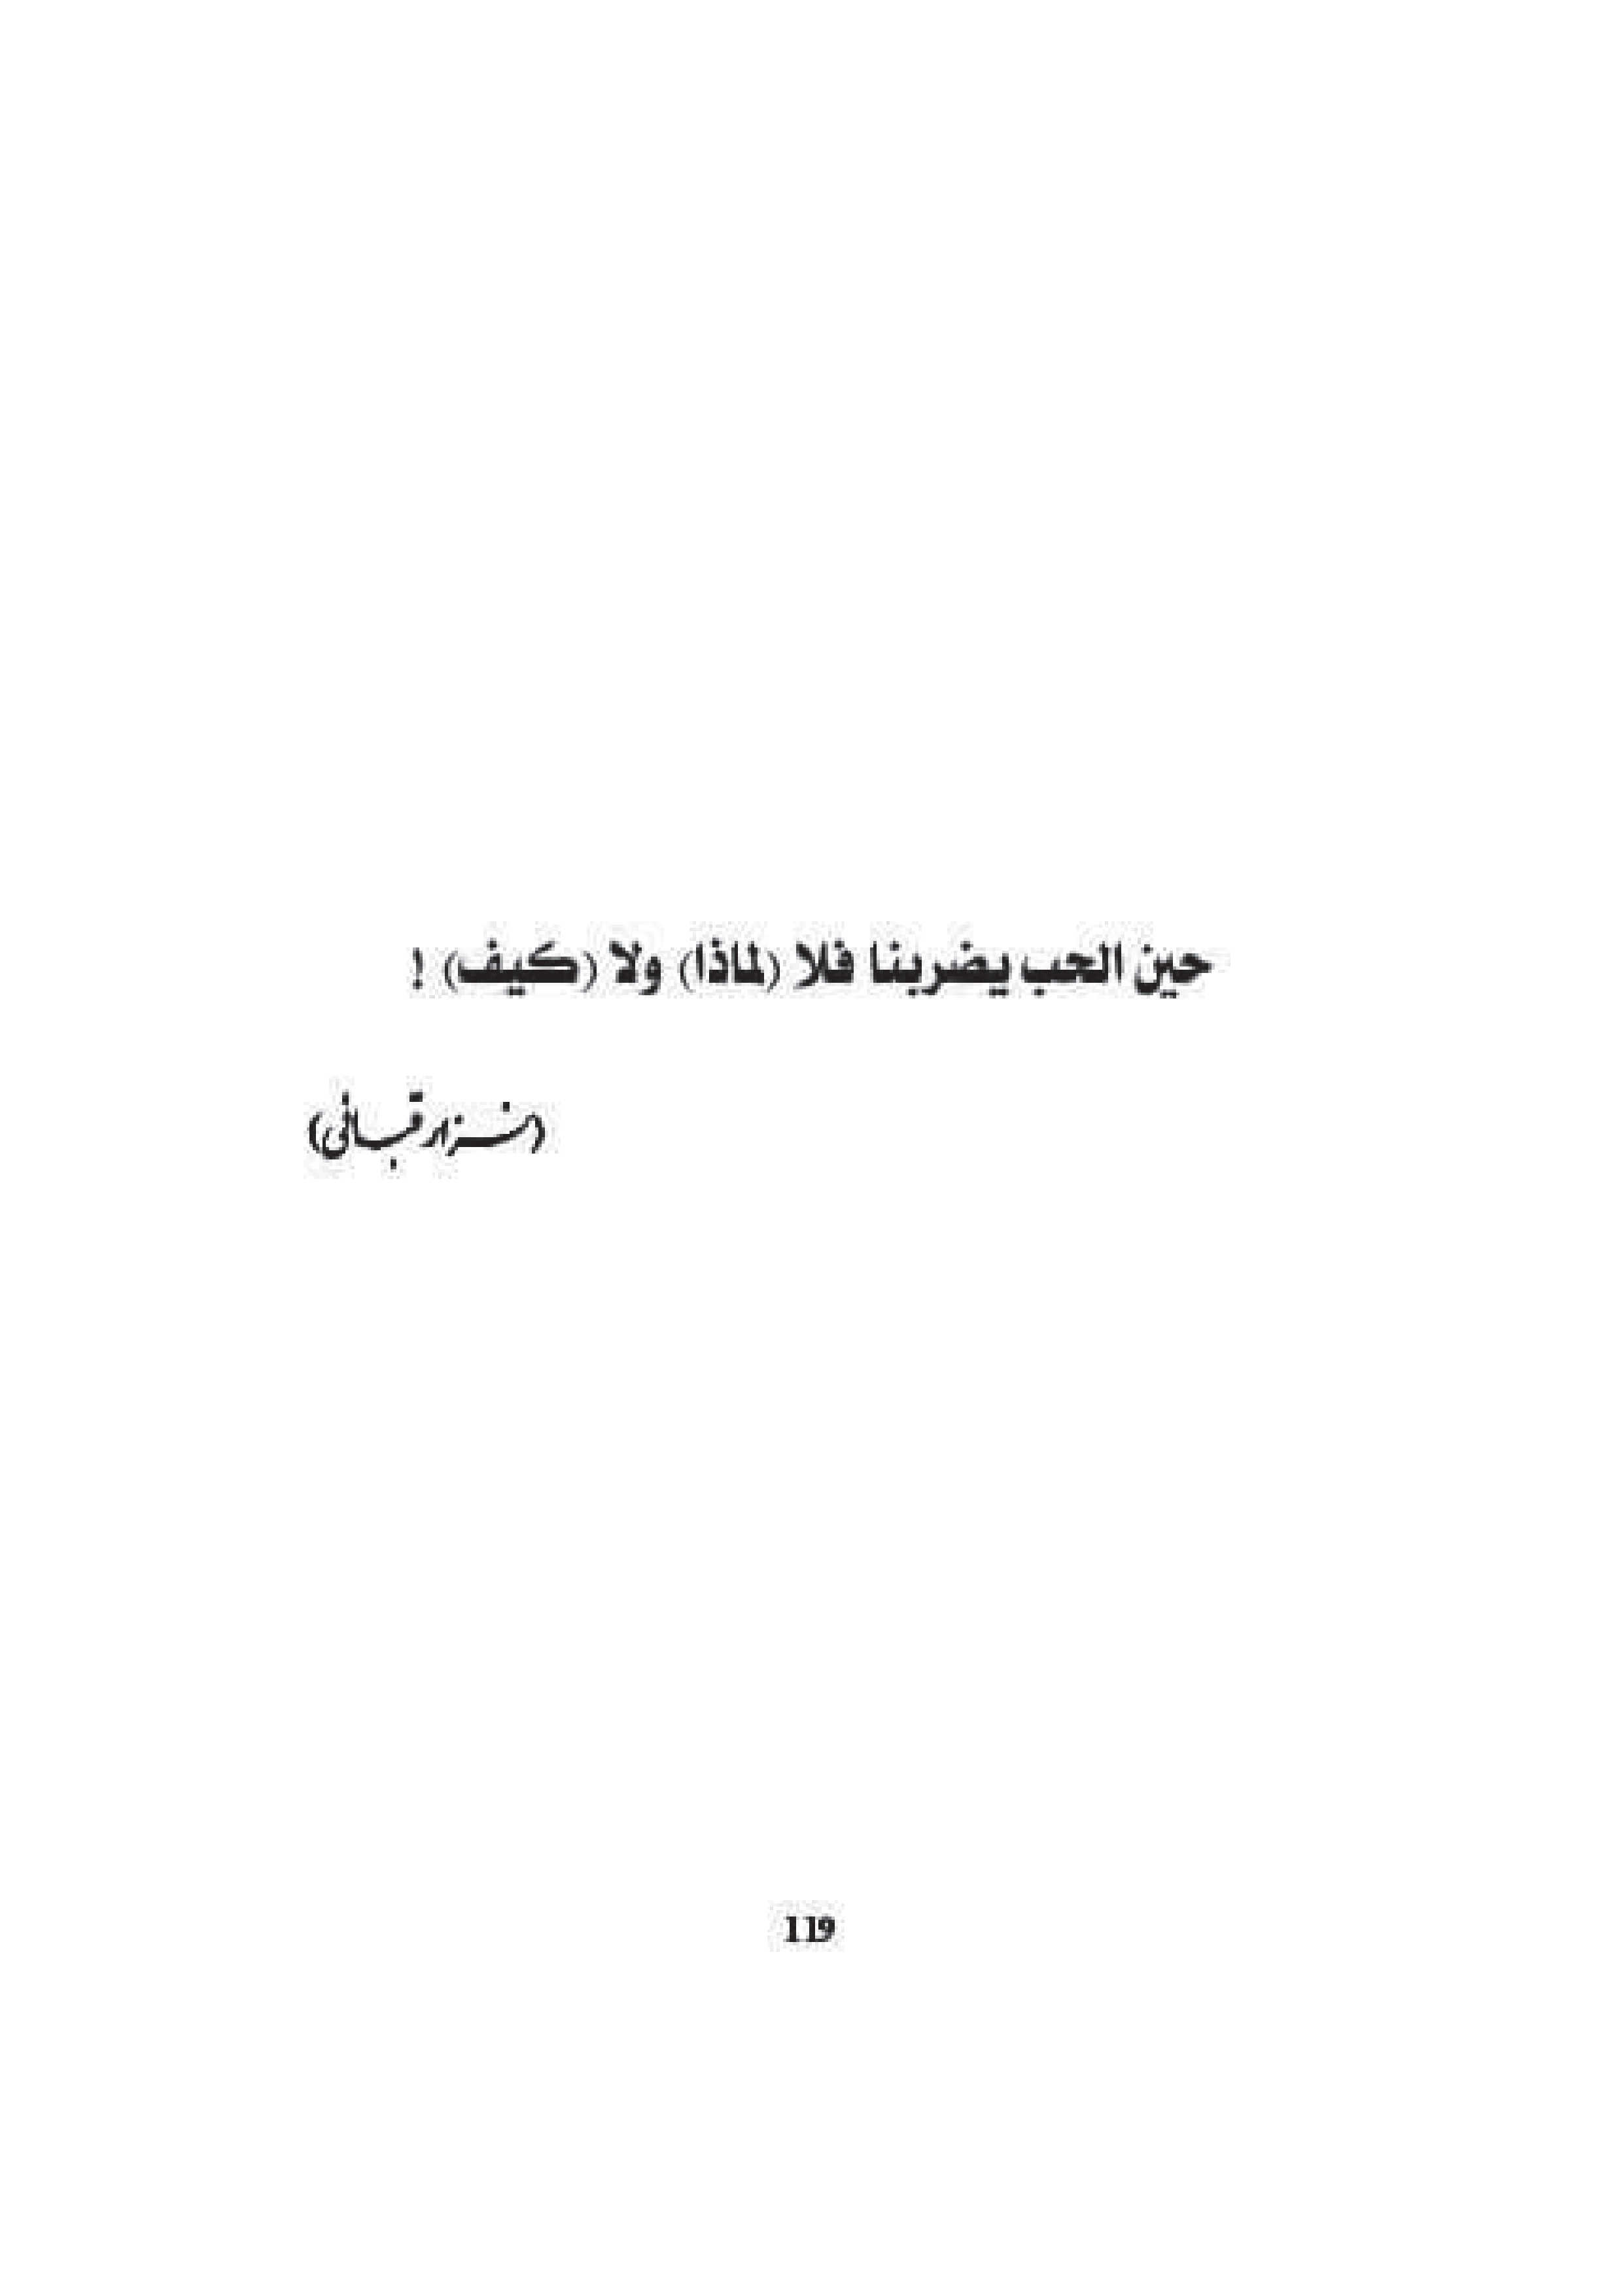 حين الحب يضربنا فلا (لماذا) ولا (كيف) !
(نزار قباني)
119